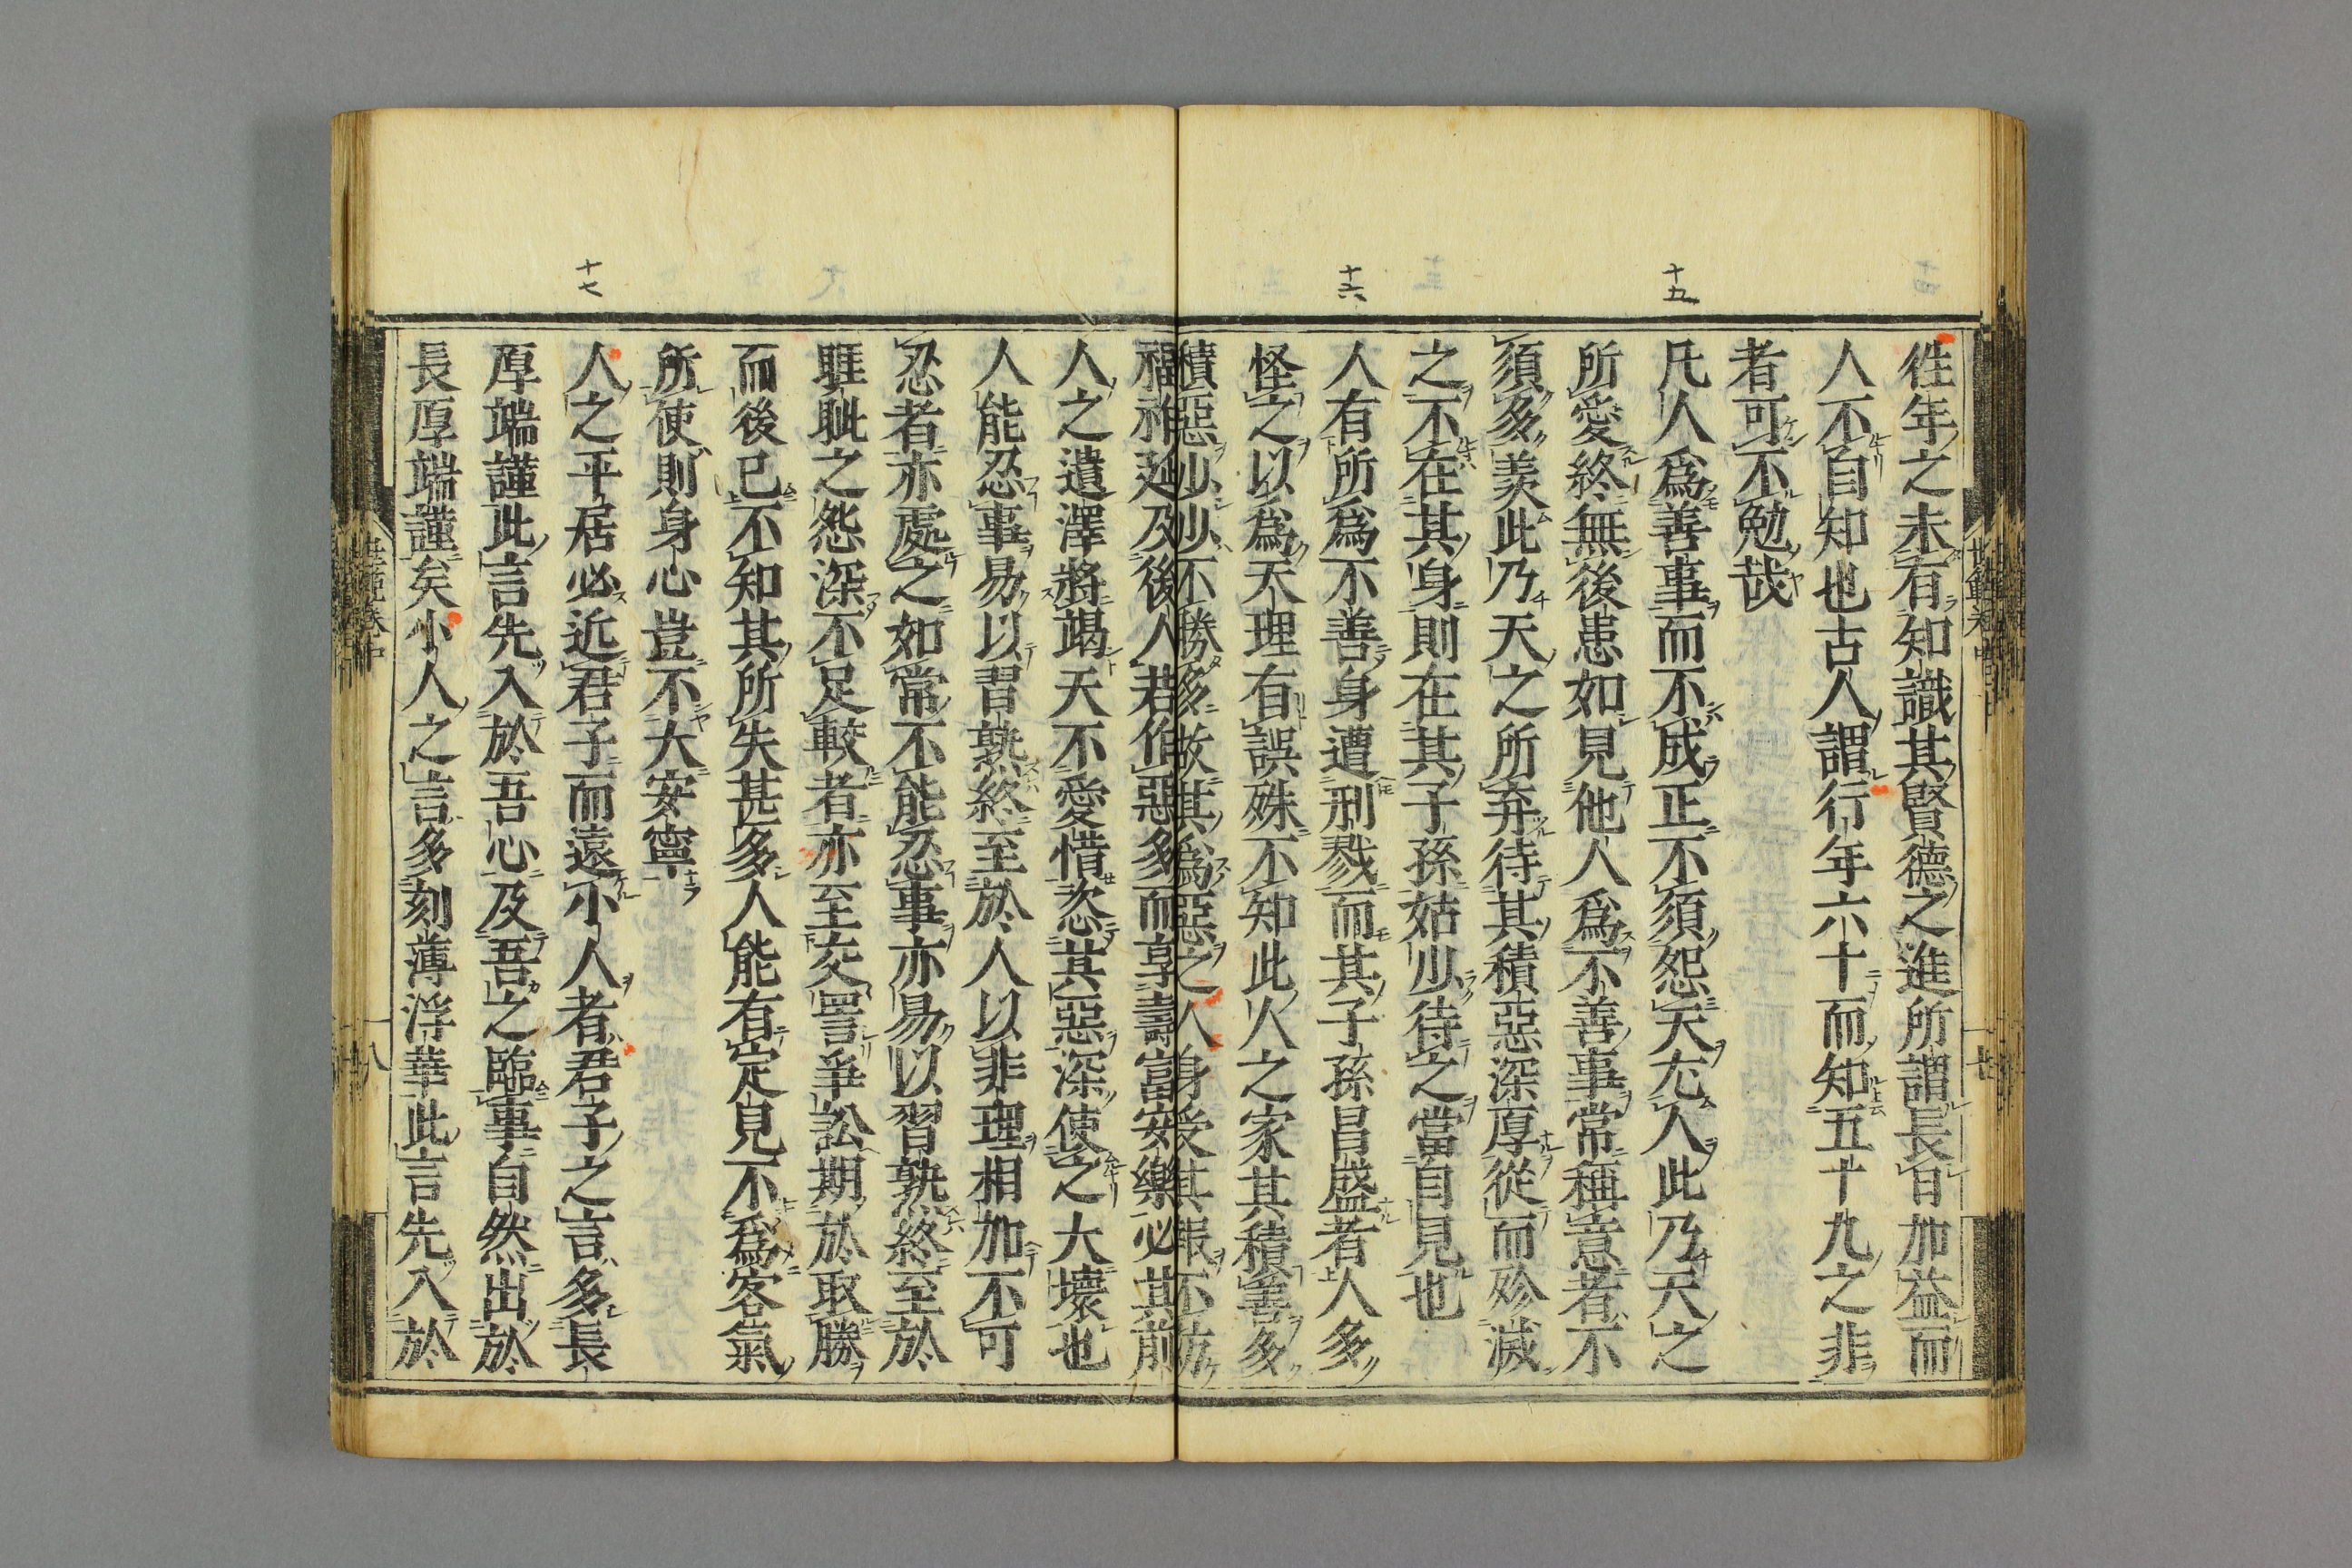 十五
十六
十七
徃年之未有知識其賢德之進所謂長日加益而
人不自知也古人謂行年六十而知五十九之非
者可不勉哉
凡人爲善事而不成正不須怨天尤人此乃天之
所愛終無後患如見他人爲不善事常稱意者不
須多羨此乃天之所弃待其積惡深厚從而殄滅
之不在其身則在其子孫姑少待之當自見也
人有所爲不善身遭刑戮而其子孫昌盛者人多
怪之以爲天理有誤殊不知此人之家其積善多
積惡少少不勝多故其爲惡之人身受其報不妨
福祚延及後人若作惡多而享壽富安樂必其前
人之遺澤將竭天不愛惜恣其惡深使之大壞也
人能忍事易以習熟終至於人以非理相加不可
忍者亦處之如常不能忍事亦易以習熟終至於
睚眦之怨深不足較者亦至交詈爭訟期於取勝
而後已不知其所失甚多人能有定見不爲客氣
所使則身心豈不大安寧
人之平居必近君子而遠小人者君子之言多長
厚端謹此言先入於吾心及吾之臨事自然出於
長厚端謹矣小人之言多刻薄浮華此言先入於